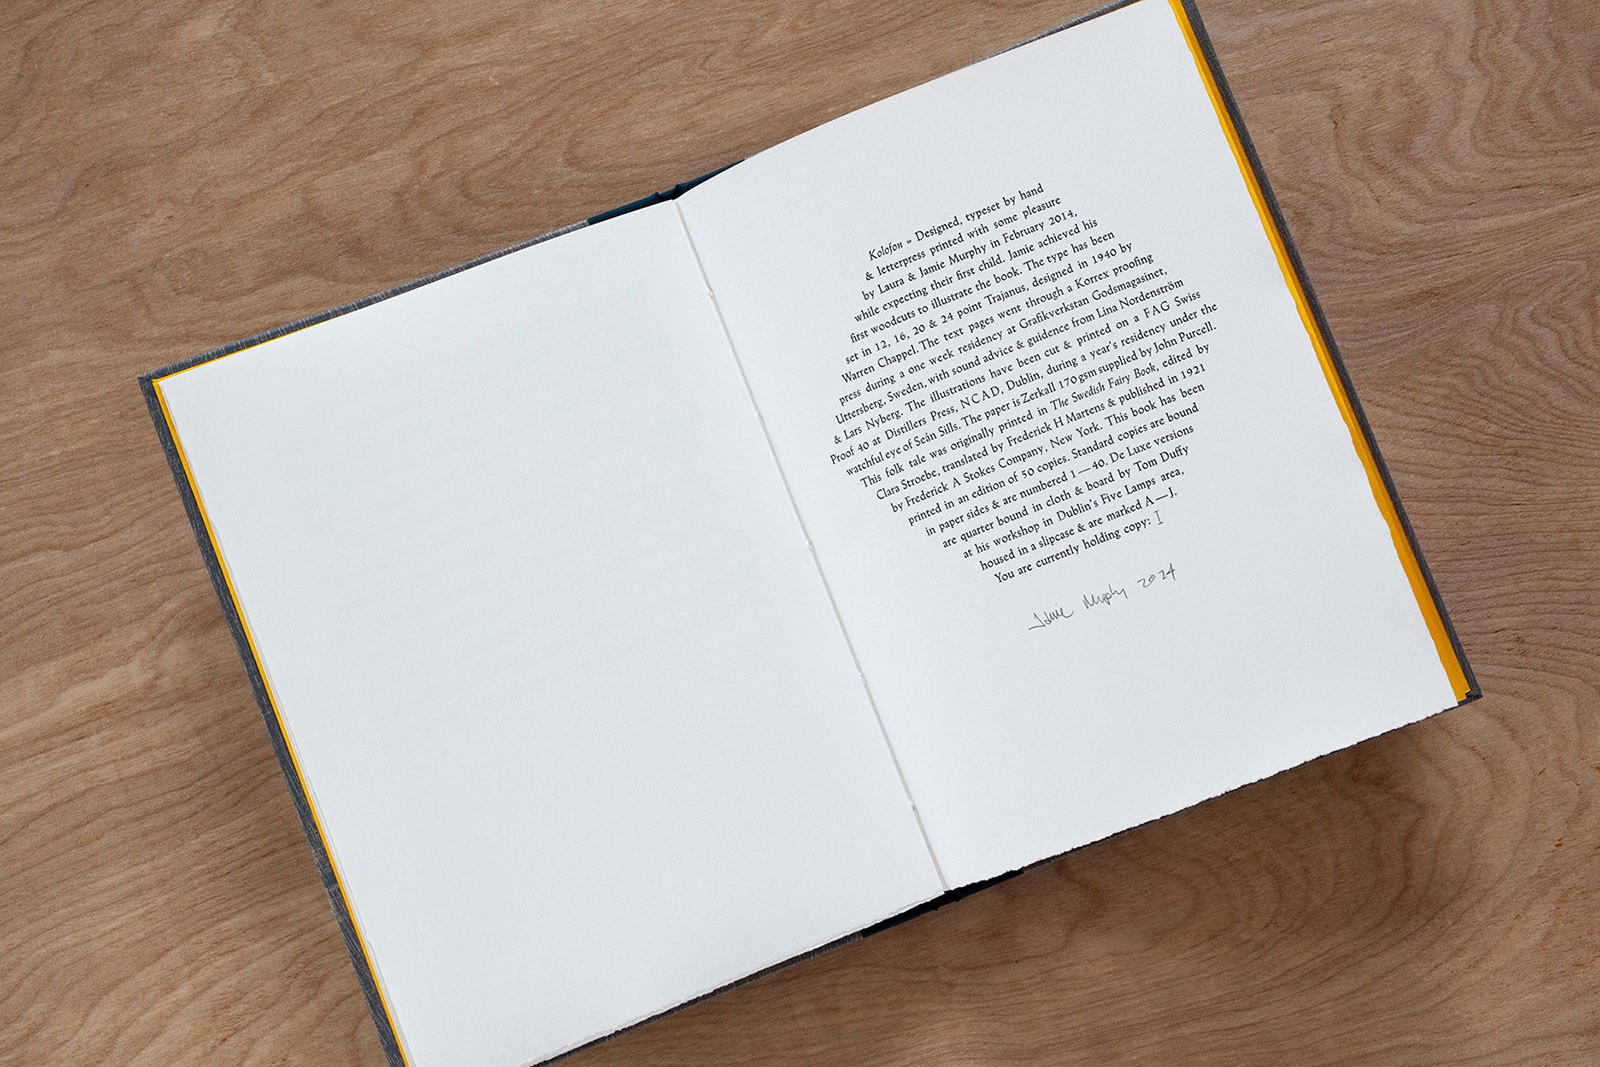 Kolofon » Designed, typeset by hand
& letterpress printed with some pleasure
by Laura & Jamie Murphy in February 2014,
while expecting their first child. Jamie achieved his
first woodcuts to illustrate the book. The type has been
set in 12, 16, 20 & 24 point Trajanus, designed in 1940 by
Warren Chappel. The text pages went through a Korrex proofing
press during a one week residency at Grafikverkstan Godsmagasinet,
Uttersberg, Sweden, with sound advice & guidance from Lina Nordenström
& Lars Nyberg. The illustrations have been cut & printed on a FAG Swiss
Proof 40 at Distillers Press, NCAD, Dublin, during a year's residency under the
watchful eye of Seán Sills. The paper is Zerkall 170gsm supplied by John Purcell.
This folk tale was originally printed in The Swedish Fairy Book, edited by
Clara Stroebe, translated by Frederick H Martens & published in 1921
by Frederick A Stokes Company, New York. This book has been
printed in an edition of 50 copies. Standard copies are bound
in paper sides & are numbered 1—40. De Luxe versions
are quarter bound in cloth & board by Tom Duffy
at his workshop in Dublin's Five Lamps area,
housed in a slipcase & are marked A—J.
You are currently holding copy: I
Jamie Murphy 2024